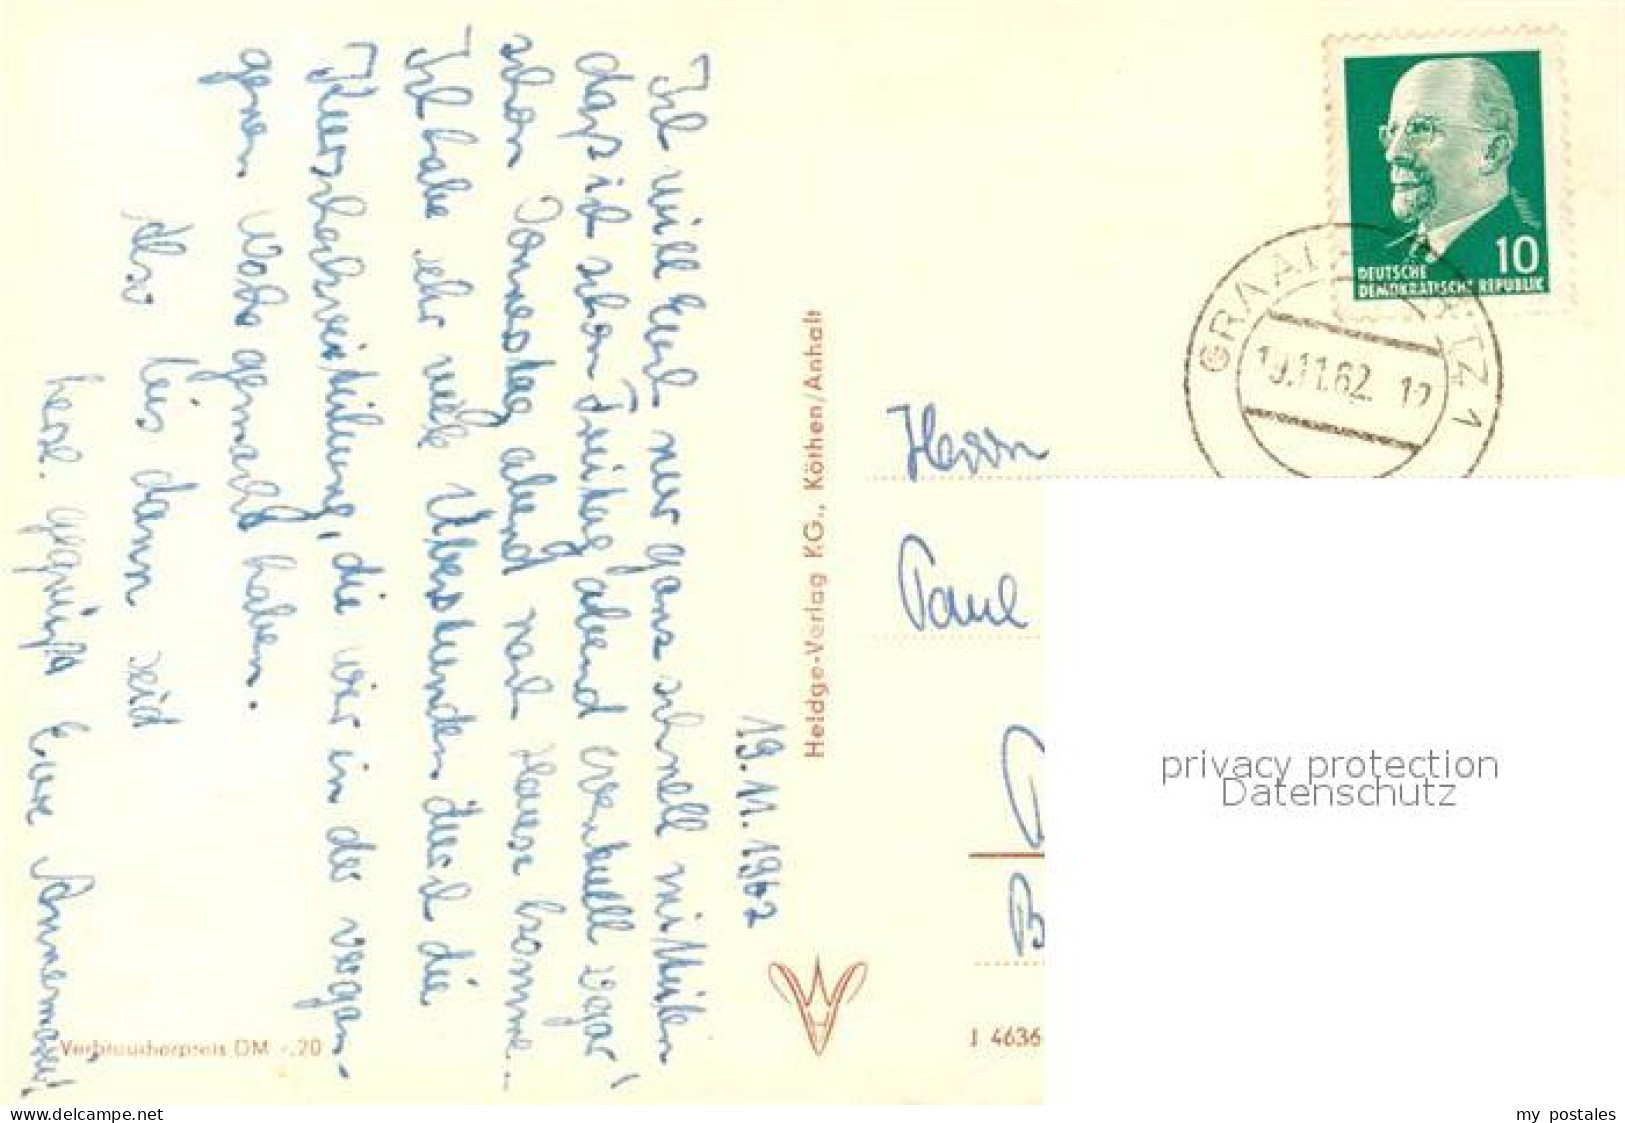 19.11.1962
Ich will Euch nur ganz schnell mitteilen
daß ich schon Freitag abend eventuell sogar
schon Donnestag abend nach Hause komme.
Ich habe sehr viele Überstunden durch die
die wir in der vergan-
genen Woche gemacht haben.
Also bis dann seid
herzl. gegrüßt Eure Annemarie!
Verbraucherpreis DM -.20
Heldge-Verlag KG., Köthen/Anhalt
10
DEUTSCHE
DEMOKRATISCHE REPUBLIK
GRAAL ITZ 1
19.11.62. 12
Herrn
Paul
B
J 4636
privacy protection
Datenschutz
www.delcampe.net
my_postales